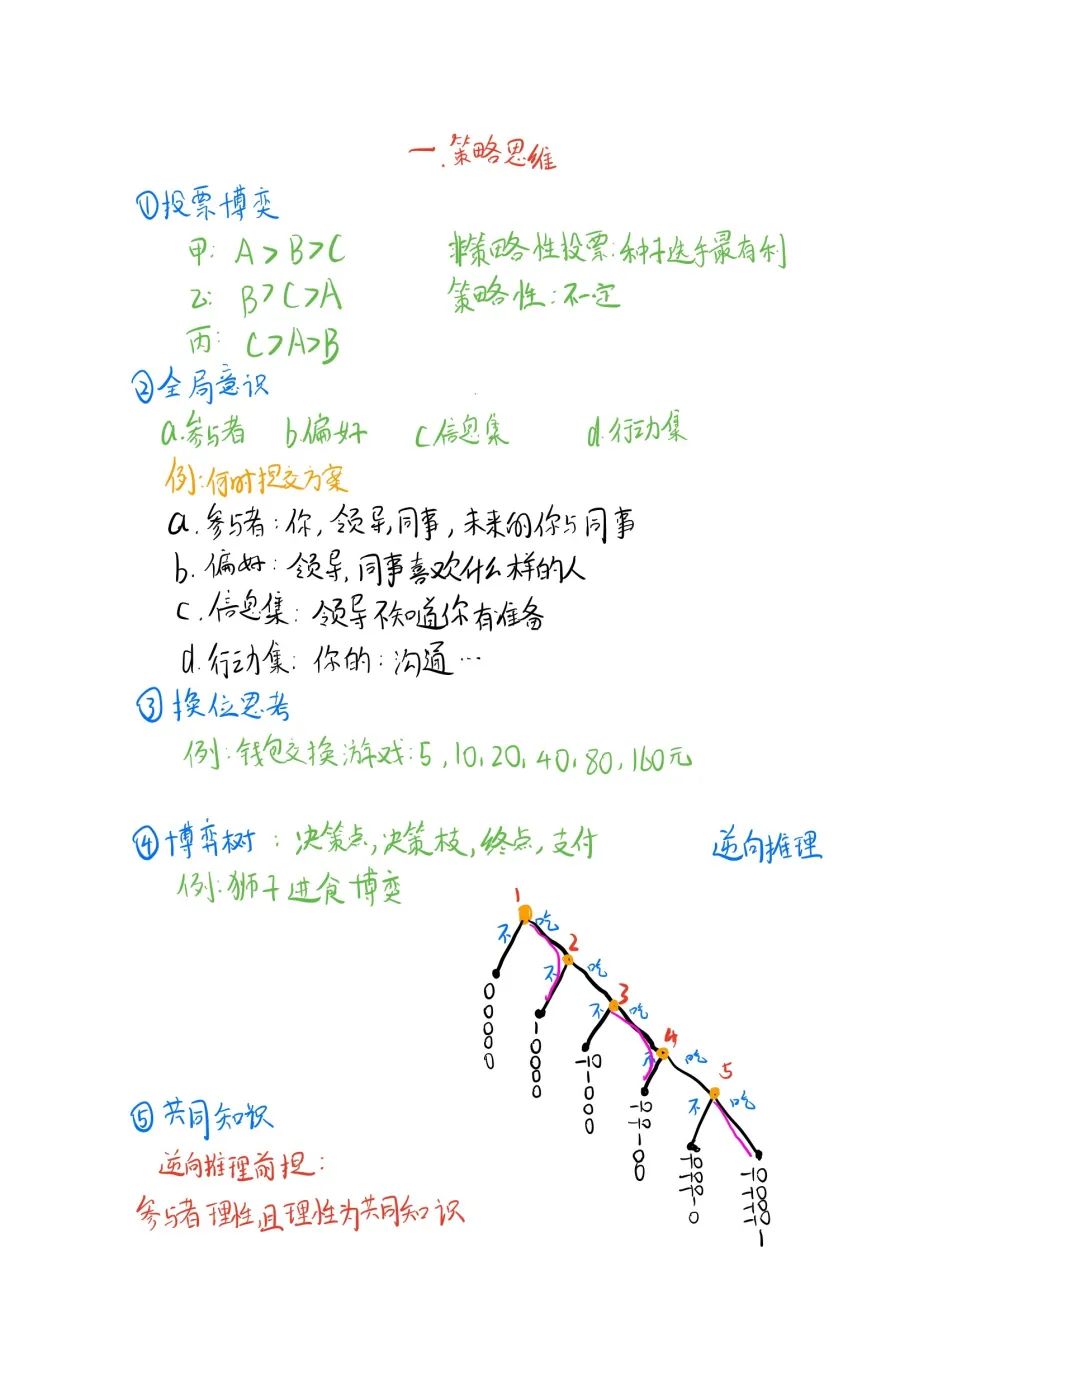 一.策略思维
①投票博弈
甲: A>B>C 非策略性投票:种子选手最有利
乙: B>C>A 策略性:不一定
丙: C>A>B
②全局意识
a.参与者 b.偏好 c.信息集 d.行动集
例:何时提交方案
a.参与者:你,领导,同事,未来的你与同事
b.偏好:领导,同事喜欢什么样的人
c.信息集:领导不知道你有准备
d.行动集:你的:沟通…
③换位思考
例:钱包交换游戏:5,10,20,40,80,160元
④博弈树:决策点,决策枝,终点,支付 逆向推理
例:狮子进食博弈
1
不 吃
2
不 吃
3
不 吃
4
不 吃
5
不 吃
00000
10000
⑤共同知识
逆向推理前提:
参与者理性,且理性为共同知识